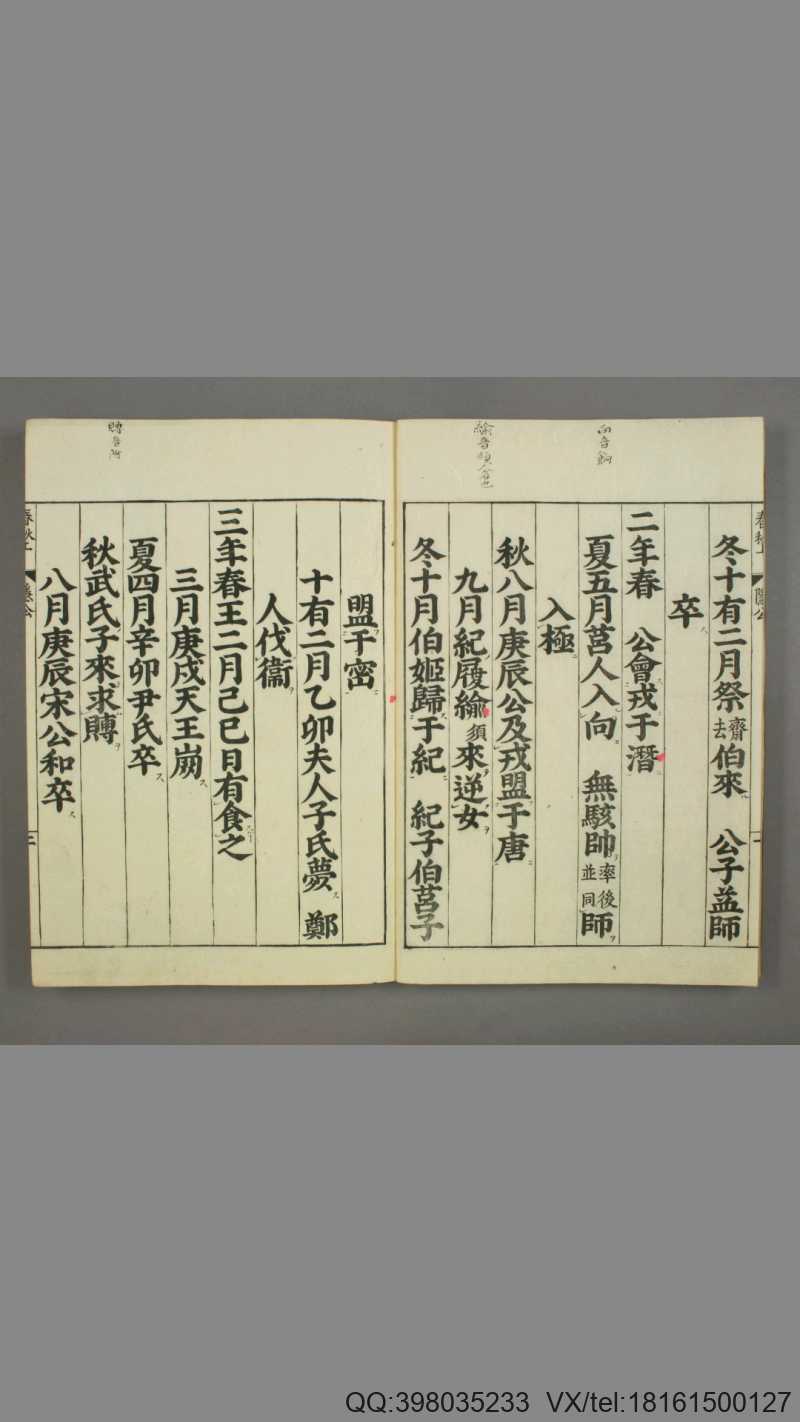 向音餉
春秋上
隱公
冬十有二月祭齊去伯來　公子益師
卒
二年春　公會戎于潛
夏五月莒人入向　無駭帥率後並同師
入極
秋八月庚辰公及戎盟于唐
九月紀履緰須來逆女
冬十月伯姬歸于紀　紀子伯莒子
盟于密
十有二月乙卯夫人子氏薨　鄭
人伐衞
三年春王二月己巳日有食之
三月庚戌天王崩
夏四月辛卯尹氏卒
秋武氏子來求賻
八月庚辰宋公和卒
QQ:398035233 VX/tel:18161500127